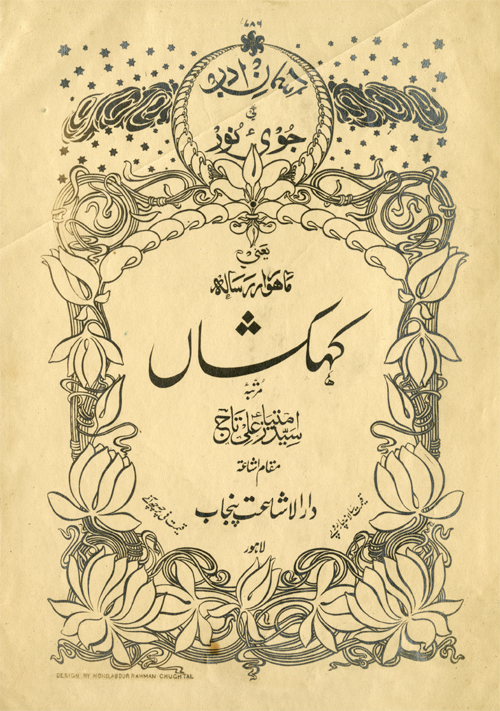 ۷۸۶
آسمان ادب
کی
جوئے نور
یعنی
ماہوار رسالہ
کہکشاں
مرتبہ
سید امتیاز علی تاج
مقام اشاعۃ
دارالاشاعت پنجاب
لاہور
DESIGN BY MOHD. ABDUR RAHMAN CHUGHTAI.